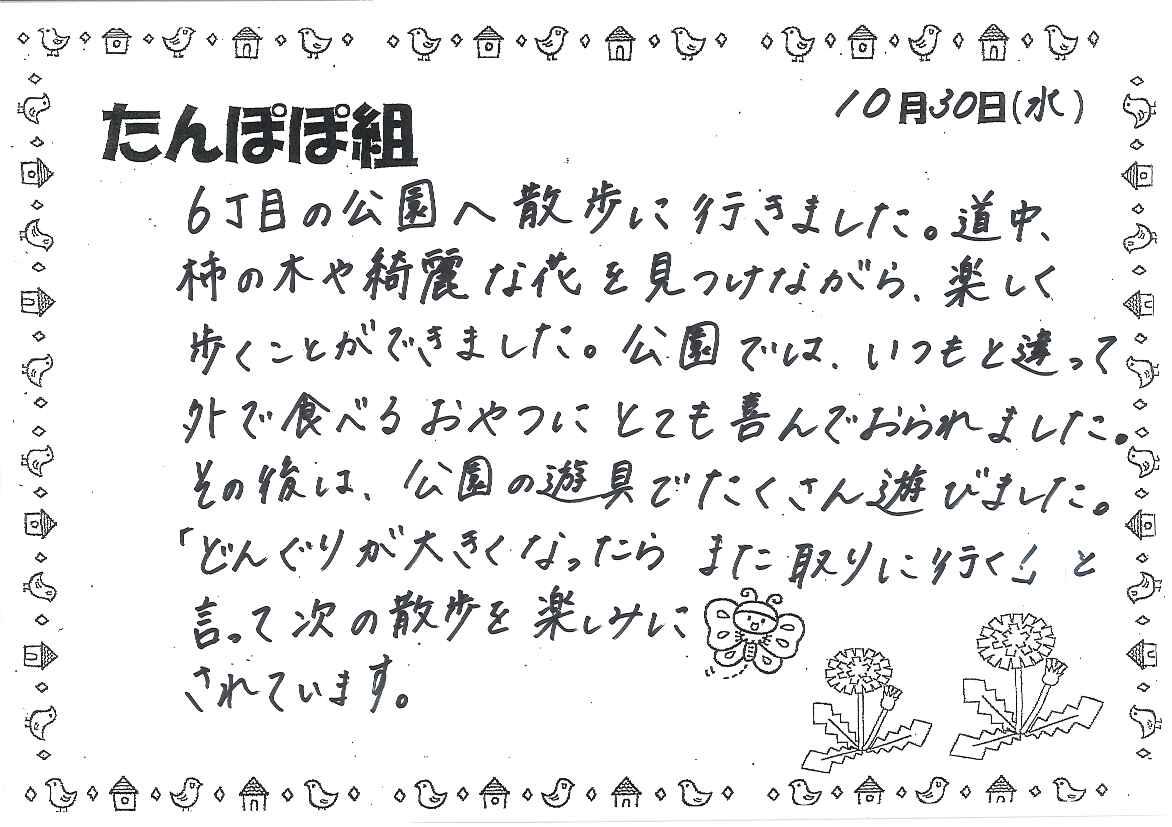 たんぽぽ組
10月30日(水)
6丁目の公園へ散歩に行きました。道中、
柿の木や綺麗な花を見つけながら、楽しく
歩くことができました。公園では、いつもと違って
外で食べるおやつにとても喜んでおられました。
その後は、公園の遊具でたくさん遊びました。
「どんぐりが大きくなったら また取りに行く!」と
言って次の散歩を楽しみに
されています。